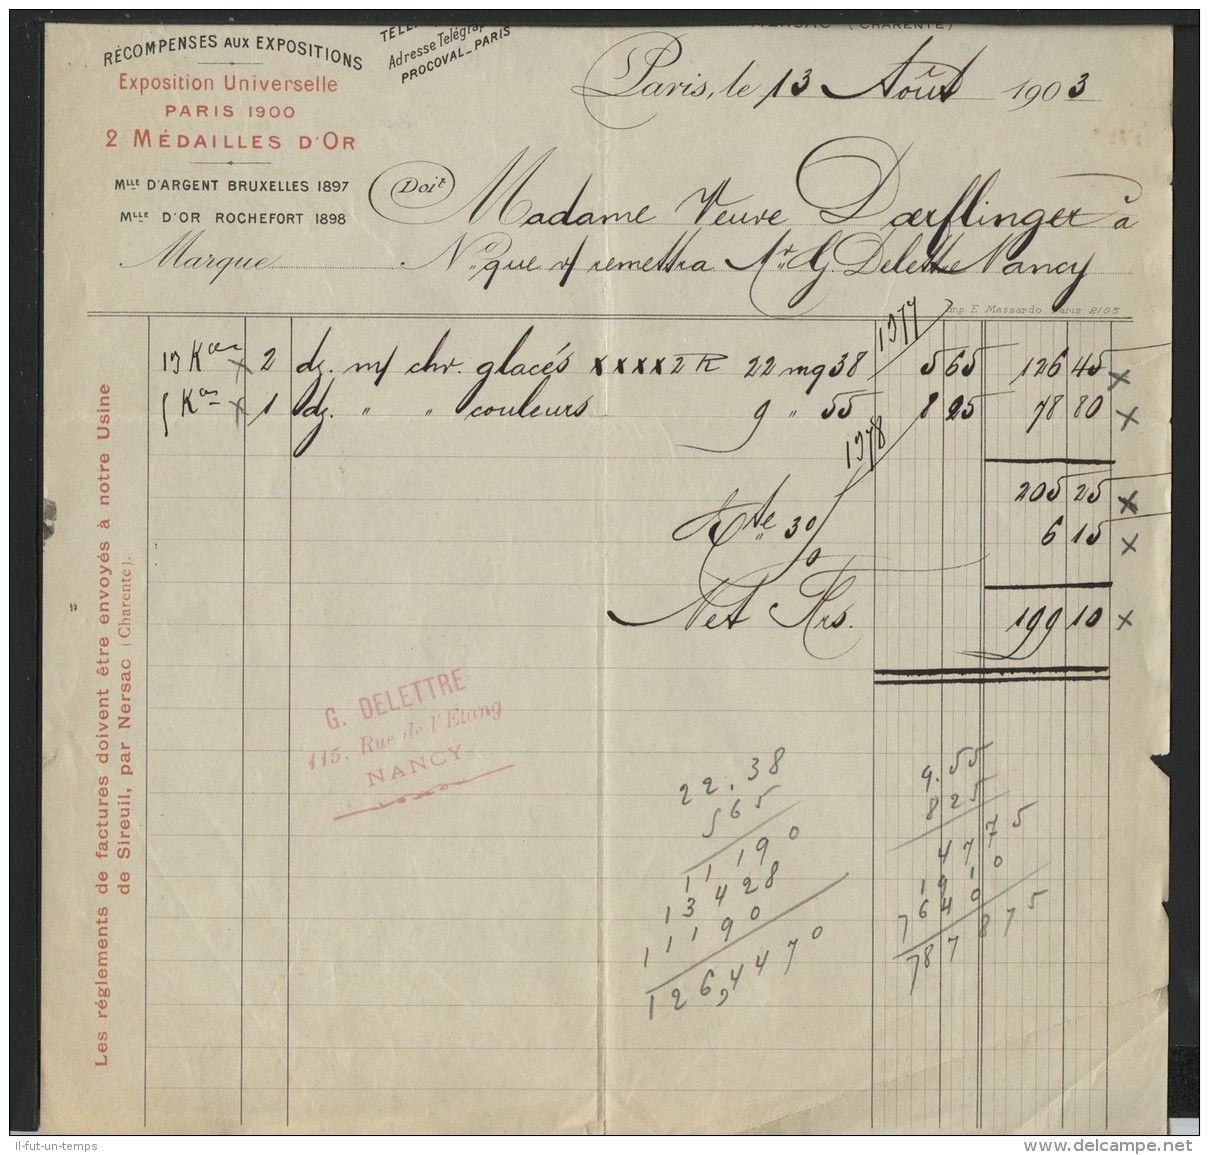 NERSAC (CHARENTE)
RÉCOMPENSES AUX EXPOSITIONS
Exposition Universelle
PARIS 1900
2 MÉDAILLES D'OR
MLLE D'ARGENT BRUXELLES 1897
MLLE D'OR ROCHEFORT 1898
Adresse Télégraph
PROCOVAL-PARIS
Paris, le 13 Août 1903
Doit Madame Veuve Dœrflinger à
Marque N° que v/ remettra Mr. G. Delettre Nancy
Imp. E. Massardo, Paris 2165
13 Kos x 2 dz. m/ chv. glacés xxxx2R 22 mq 38 1977 5 65 126 45 x
5 Kos x 1 dz. " " couleurs 9 " 55 1978 8 25 78 80 x
205 25 x
Ete 30/0 6 15 x
Net Frs. 199 10 x
G. DELETTRE
115, Rue de l'Etang
NANCY
22.38
565
11190
13428
11190
126,4470
9.55
825
4775
1910
7640
787875
Les réglements de factures doivent être envoyés à notre Usine
de Sireuil, par Nersac (Charente).
Il-fut-un-temps
delcampe.net